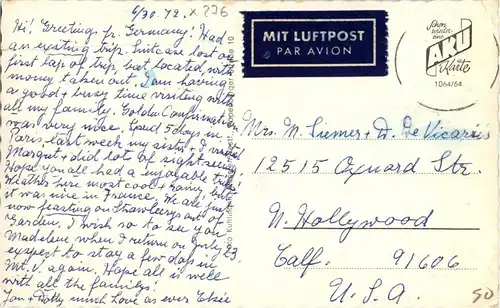 6/30.72. x 236
Hi! Greetings fr. Germany! Had
an exsting trip. Suitcase lost on
first lap of trip, but located, with
money taken out. I am having
a good & busy time visiting with
all my family. Golda Confirmation
was very nice. Spend 5 days in
Paris last week my sister & I visited
Margret & did lot of sight seeing
Hope you all had a enjoyable trip!
Weather here most cool & rainy, but
it was nice in France. We are
now feasting on Strawberrys out of
Garden. I wish so to see you
Madelene when I return on July 23
exspect to stay a few days in
Mt. V. again. Hope all is well
with all the familys!
Jan & Dolly much Love as ever Elsie
MIT LUFTPOST
PAR AVION
Schon
wieder
eine
AKU
Karte
1064/64
Mrs. M. Siemer & D. DeVicariis
12515 Oxnard Str.
N. Hollywood
Calf. 91606
U.S.A.
50